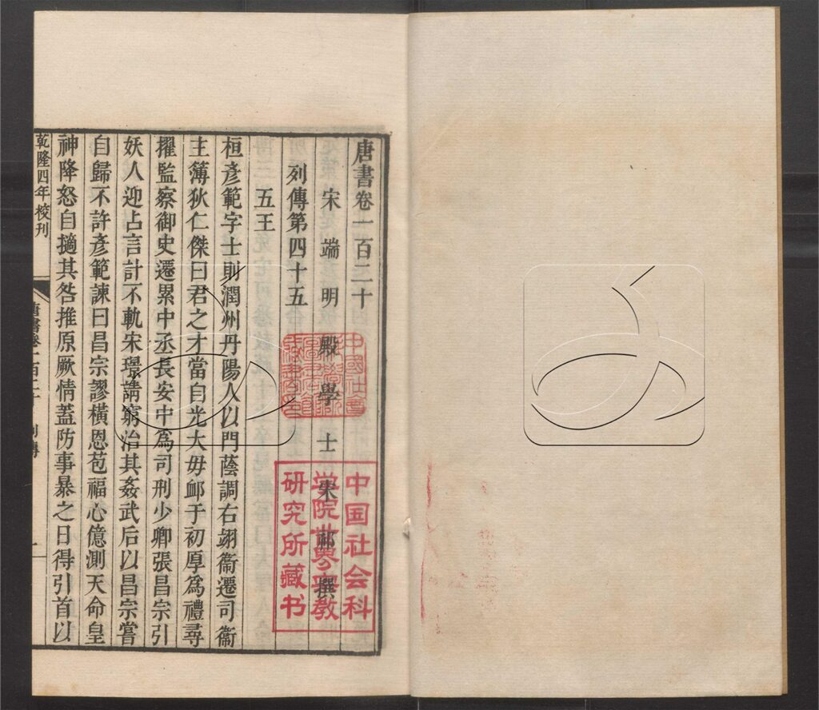 唐書卷一百二十
宋端明殿學士宋祁撰
列傳第四十五
五王
桓彥範字士則潤州丹陽人以門蔭調右翊衞遷司衞
主簿狄仁傑曰君之才當自光大毋卹于初厚為禮尋
擢監察御史遷累中丞長安中為司刑少卿張昌宗引
妖人迎占言計不軌宋璟請窮治其姦武后以昌宗嘗
自歸不許彥範諫曰昌宗謬橫恩苞福心億測天命皇
神降怒自擿其咎推原厥情蓋防事暴之日得引首以
乾隆四年校刊
唐書卷一百二十 列傳
一
中国社会科
学院世界宗教
研究所藏书